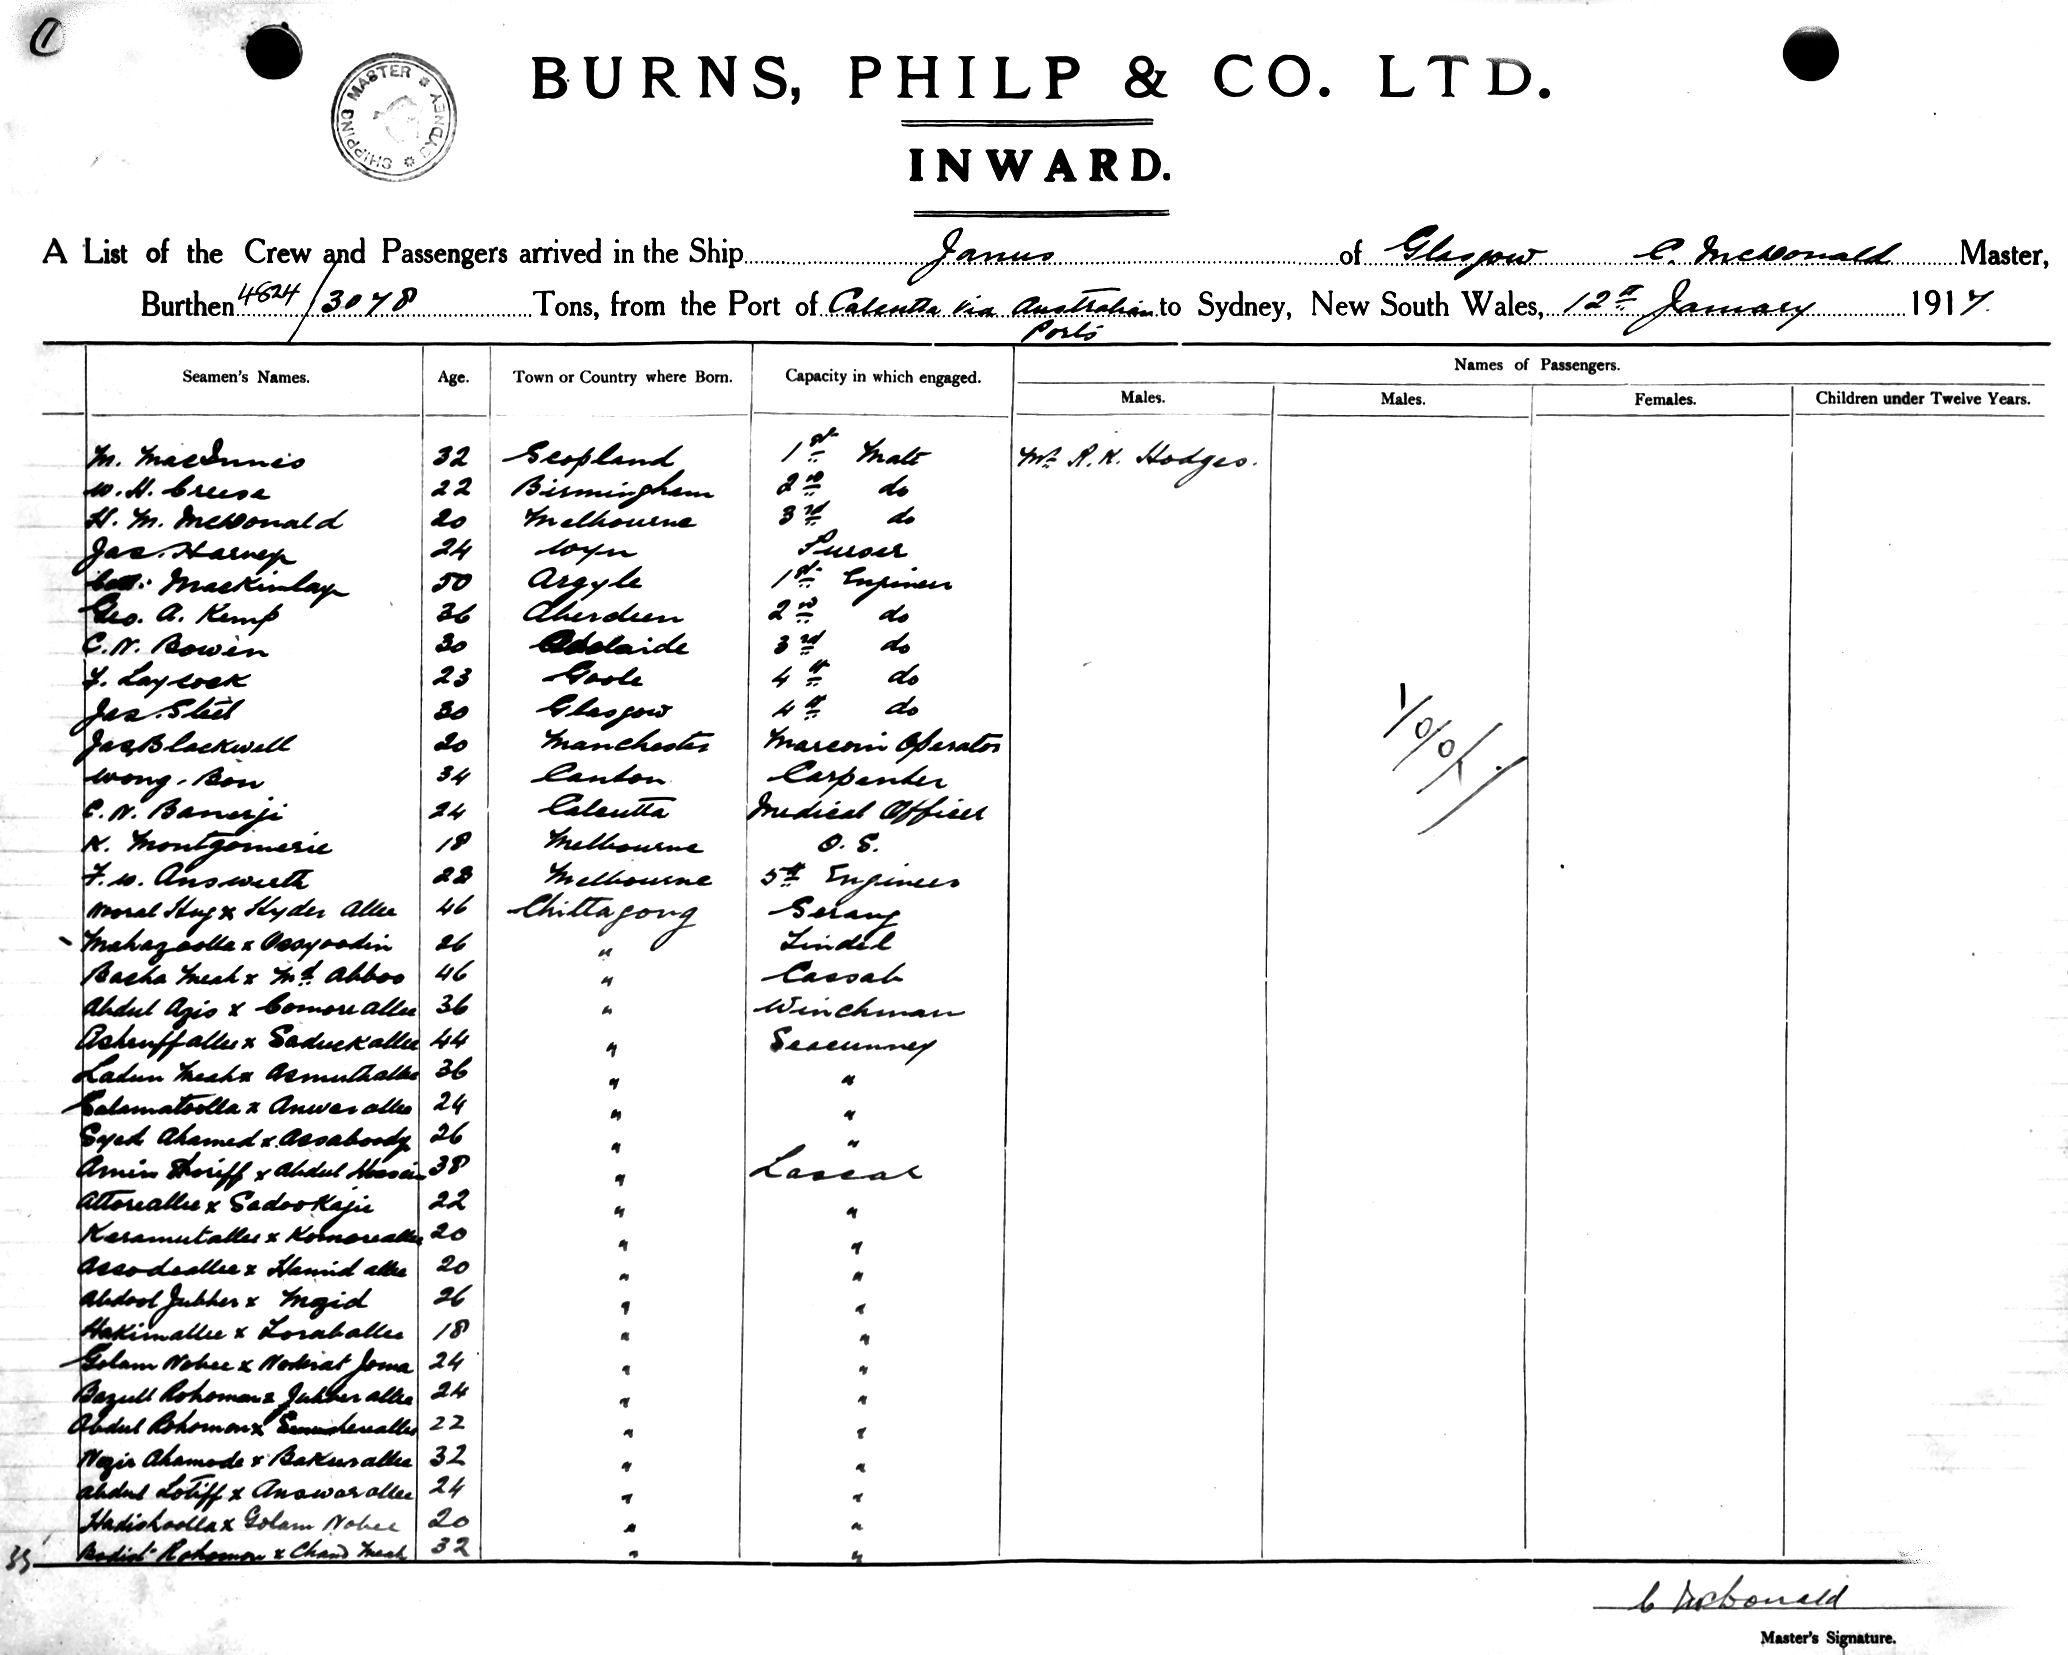 1
SHIPPING MASTER * SYDNEY *
BURNS, PHILP & CO. LTD.
INWARD.
A List of the Crew and Passengers arrived in the Ship Janus of Glasgow C. McDonald Master,
Burthen 4824/3078 Tons, from the Port of Calcutta via Australian Ports to Sydney, New South Wales, 12th January 1917.
Names of Passengers.
Seamen's Names. Age. Town or Country where Born. Capacity in which engaged. Males. Males. Females. Children under Twelve Years.
M. MacInnes 32 Scotland 1st Mate Mr R. K. Hodges.
W. H. Creese 22 Birmingham 2nd do
H. M. McDonald 20 Melbourne 3rd do
Jas. Harvey 24 Purser
MacKinlay 50 Argyle 1st Engineer
Geo. A. Kemp 36 Aberdeen 2nd do
C. N. Bowen 30 Adelaide 3rd do
F. Laycock 23 Goole 4th do
Jas. Steel 30 Glasgow 4th do
Jas Blackwell 20 Manchester Marconi Operator
Wong. Bon 34 Canton Carpenter
C. N. Banerji 24 Calcutta Medical Officer
K. Montgomerie 18 Melbourne O. S.
F. W. Answerth 28 Melbourne 5th Engineer
Nooral Huq x Hyder Allee 46 Chittagong Serang
Mahazoolla x Osoyoodin 26 " Tindel
Basha Meah x Md Abbas 46 " Cassab
Abdul Azis x Comoreallee 36 " Winchman
Ashruffallee x Saduckallee 44 " Seacunney
Ladun Meah x Asmuthallee 36 " "
Salamatoolla x Anwarallee 24 " "
Syed Ahamed x Assaboody 26 " "
Amin Shoriff x Abdul Hossein 38 " Lascar
Attoreallee x Sadoo Kajie 22 " "
Keramutallee x Komoreallee 20 " "
Assodeallee x Hamid allee 20 " "
Abdool Jubber x Mozid 26 " "
Hakimallee x Toraballee 18 " "
Golam Nobee x Joma 24 " "
Bazull Rohoman x Jubberallee 24 " "
Abdul Rohoman x 22 " "
Nozir Ahamode x Bakurallee 32 " "
Abdul Lotiff x Answarallee 24 " "
Hadishoolla x Golam Nobee 20 " "
35 Rohomon x Chand Meah 32 " "
1/0/0/1
C McDonald
Master's Signature.